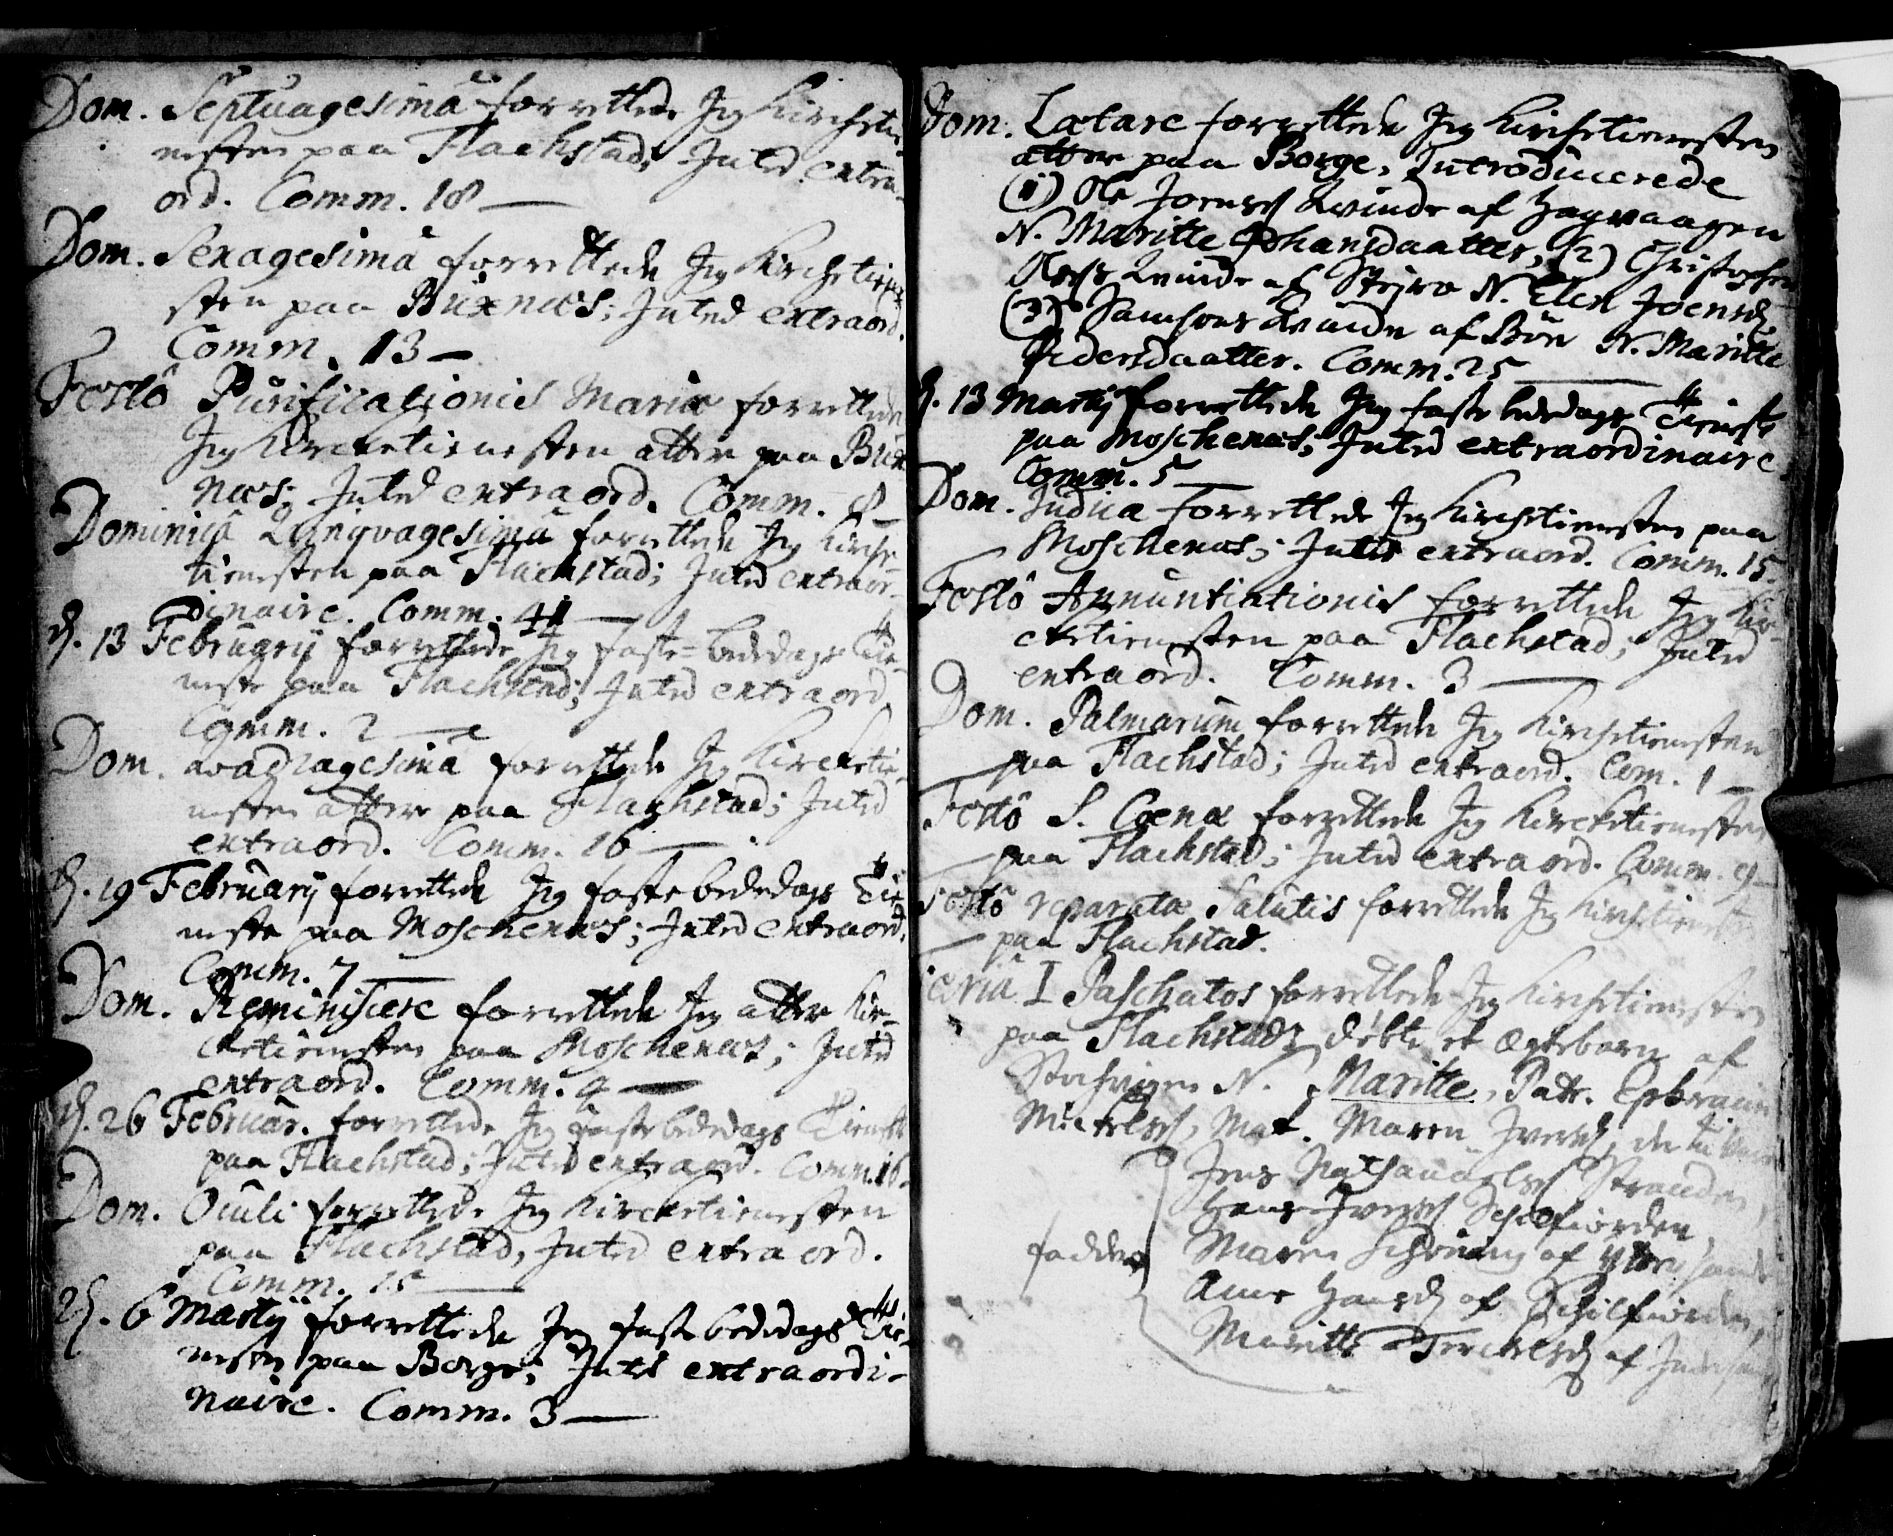 Dom. Septuagesima forrettede Jeg Kirchetie-
nesten paa Flachstad; Inted extra-
ord. Comm. 18
Dom. Sexagesima forrettede Jeg Kirchetiene-
sten paa Buxnæs; Inted extraord.
Comm. 13
Festo Purificationis Mariæ forrettede
Jeg Kircketienesten atter paa Bux
næs; Inted extraord. Comm. 8
Dominica Qvinqvagesima forrettede Jeg Kirche-
tienesten paa Flachstad; Inted extraor-
dinaire. Comm. 41
d. 13 Februarij forrettede Jeg faste-bededags Tie-
neste paa Flachstad; Inted extraord.
Comm. 2
Dom. Qvadragesima forrettede Jeg Kircketie-
nesten atter paa Flachstad; Inted
extraord. Comm. 16
d. 19 Februarij forrettede Jeg fastebededags Tie-
neste paa Moschenæs; Inted extraord.
Comm. 7
Dom. Reminiscere forrettede Jeg atter Kir-
cketienesten paa Moschenæs; Inted
extraord. Comm. 4
d. 26 Februar. forrettede Jeg fastebededags Tieneste
paa Flachstad; Inted extraord. Comm. 16.
Dom. Oculi forrettede Jeg Kircketienesten
paa Flachstad, Inted extraord.
Comm. 15
d. 6 Martij forrettede Jeg fastebededags Tie-
nesten paa Borge; Inted extraordi-
naire. Comm. 3
Dom. Lætare forrettede Jeg Kirchetienesten
atter paa Borge, Introducerede
(1) Ole Joensøs Qvinde af Hagvaagen
N. Maritte Johansdaatter, (2) Christopher
Olsøs Qvinde af Stejro N. Elen Joensd.
(3) Samsons Qvinde af Bøe N. Maritte
Pedersdaatter. Comm. 25
d. 13 Martij forrettede Jeg fastebededags Tieneste
paa Moschenæs; Inted extraordinaire
Comm. 5
Dom. Judica forrettede Jeg Kirchetienesten paa
Moschenæs; Inted extraord. Comm. 15.
Festo Annuntiationis forrettede Jeg Kir-
cketienesten paa Flachstad; Inted
extraord. Comm. 3
Dom. Palmarum forrettede Jeg Kirchetienesten
paa Flachstad; Inted extraord. Com. 1
Festo S. Coenæ forrettede Jeg Kircketienesten
paa Flachstad; Inted extraord. Comm. 9
Festo reparatæ Salutis forrettede Jeg Kirchetieneste
paa Flachstad.
feria I Paschatos forrettede Jeg Kirchetienesten
paa Flachstad, døbte et Ægtebarn af
N. Maritte, Patr. Ephraim
Mickelsøn, Mat. Maren Iversd,
Jens Nathanaelsøn Stranden,
Hans Iversøn Schelfiorden,
faddere Maren Schøning af Yttersand
Anne Hansd af Schelfiorden,
Maritte Terckelsd af